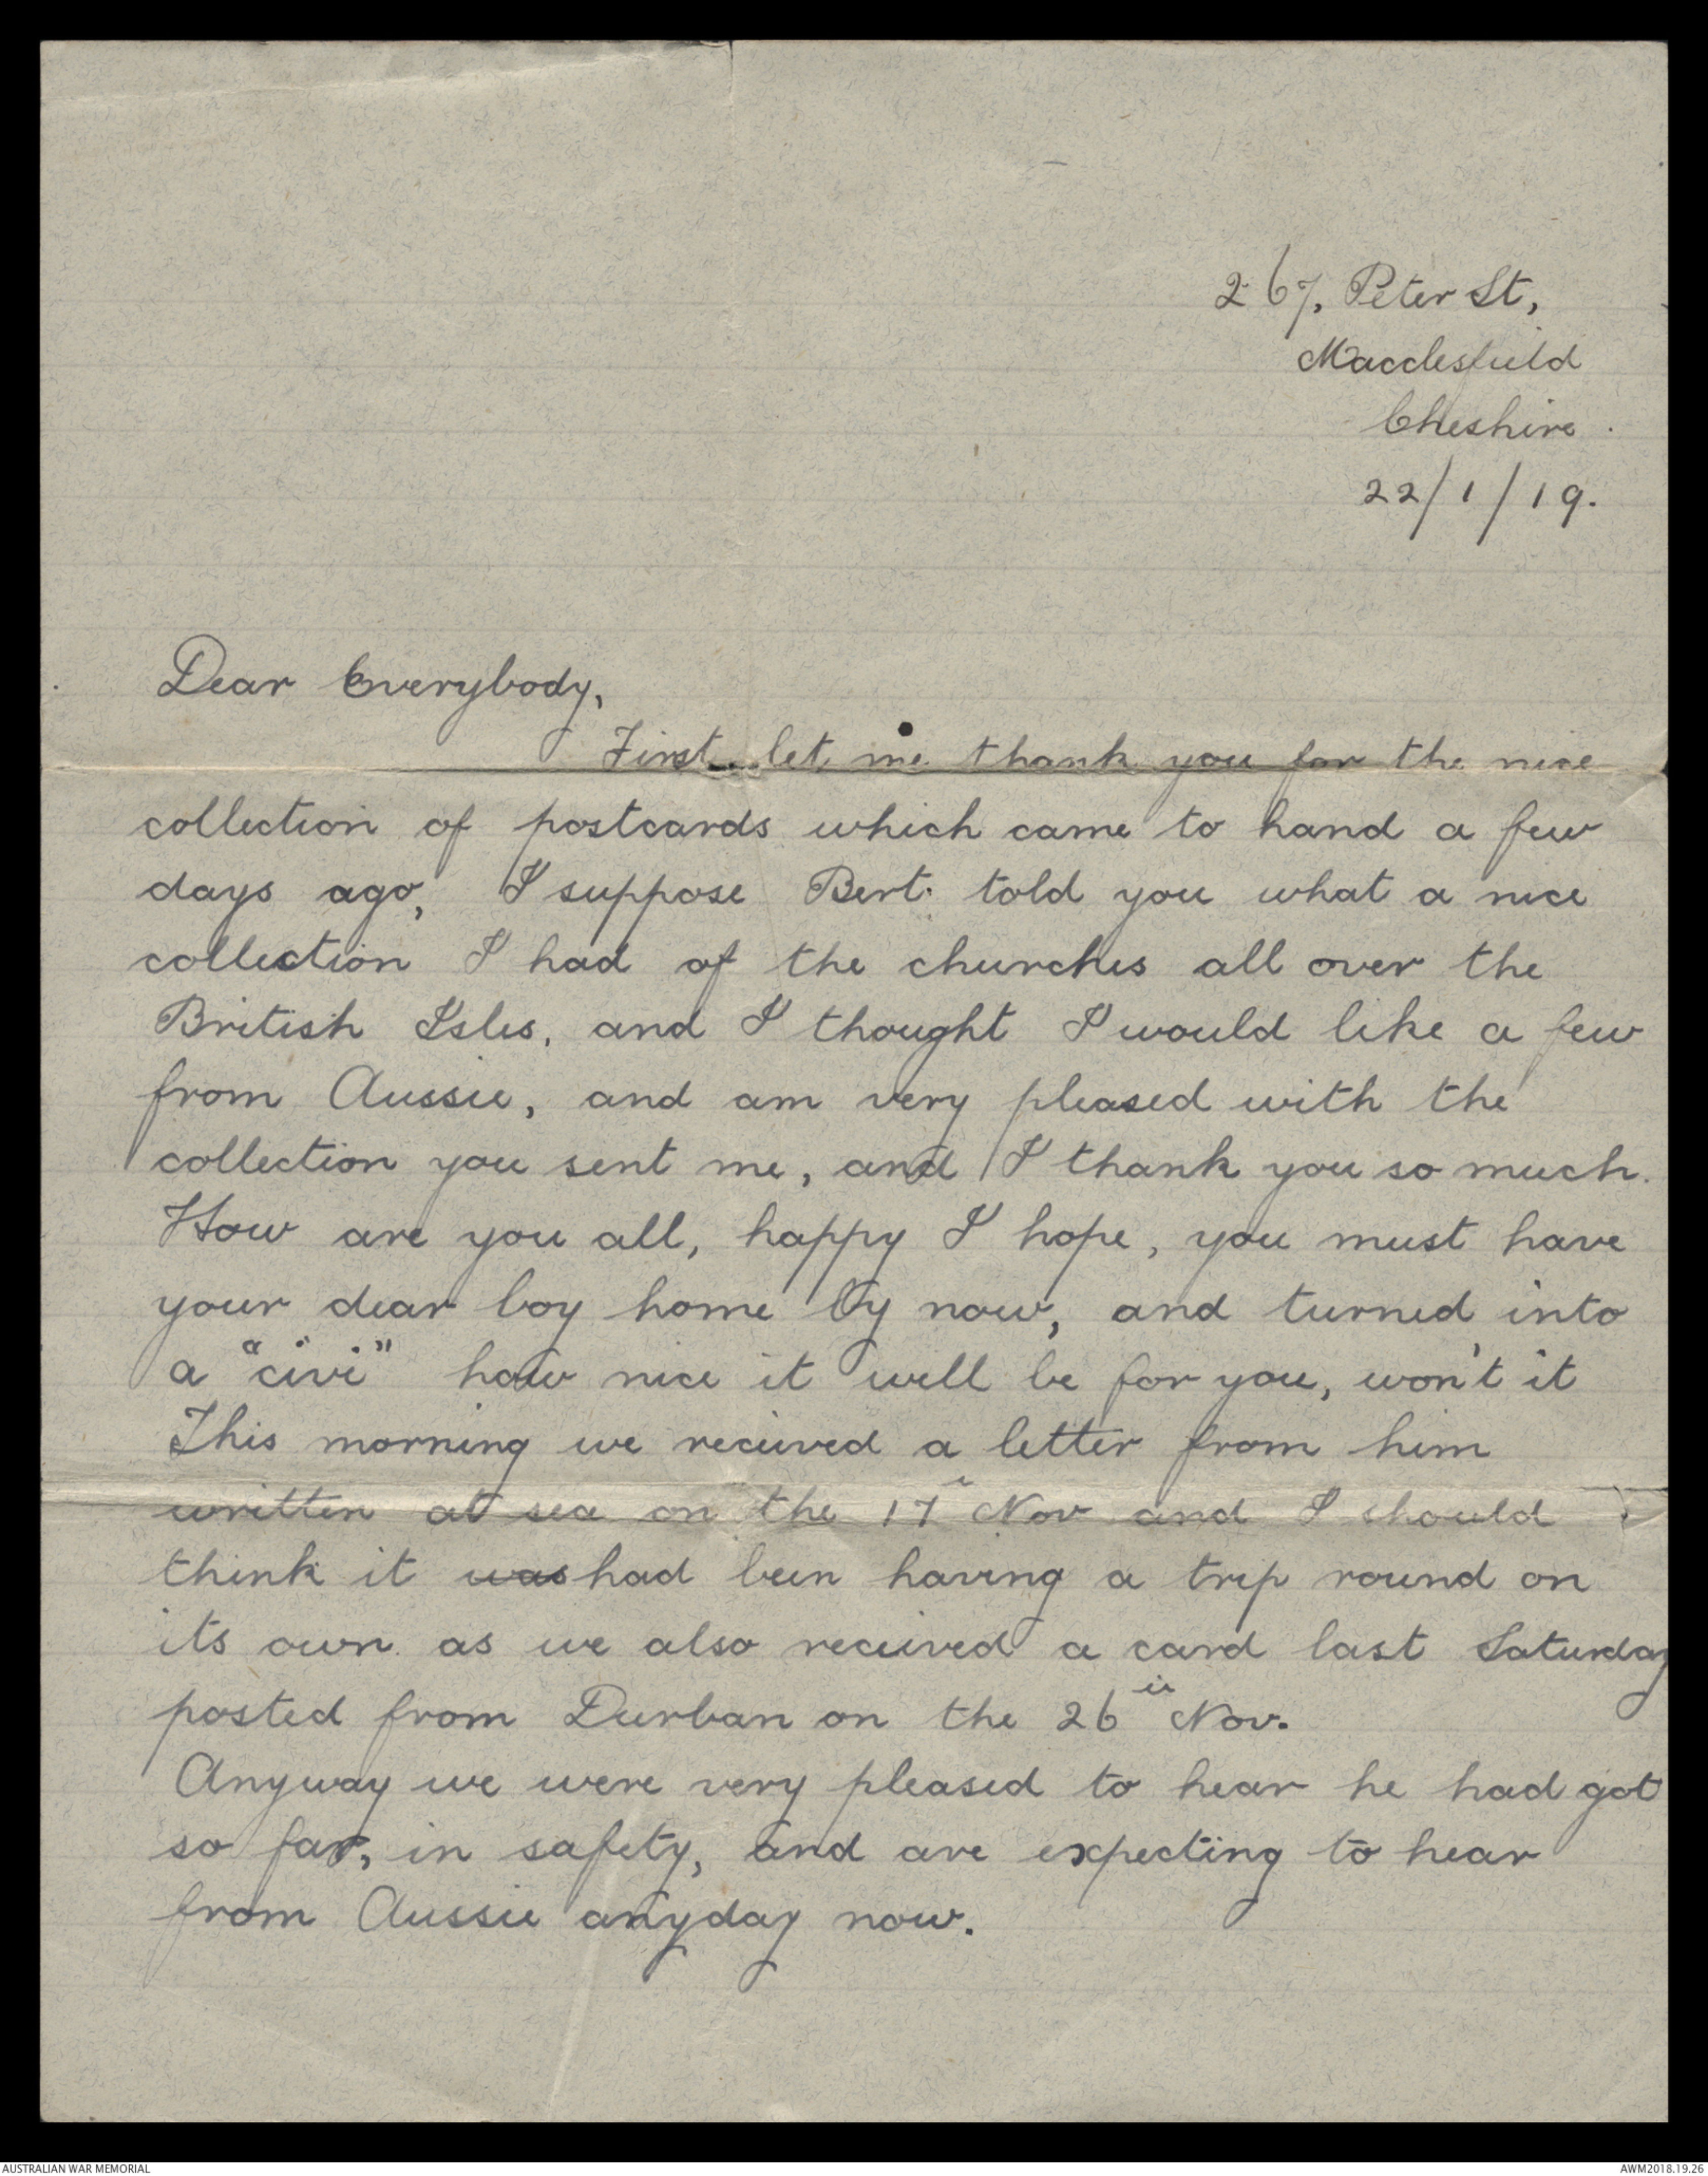 267, Peter St,
Macclesfield
Cheshire.
22/1/19.
Dear Everybody,
First let me thank you for the nice
collection of postcards which came to hand a few
days ago, I suppose Bert. told you what a nice
collection I had of the churches all over the
British Isles, and I thought I would like a few
from Aussie, and am very pleased with the
collection you sent me, and I thank you so much.
How are you all, happy I hope, you must have
your dear boy home by now, and turned into
a "civi" how nice it will be for you, won't it
This morning we received a letter from him
written at sea on the 17 Nov and I should
think it was had been having a trip round on
its own. as we also received a card last Saturday
posted from Durban on the 26 Nov.
Anyway we were very pleased to hear he had got
so far, in safety, and are expecting to hear
from Aussie anyday now.
AUSTRALIAN WAR MEMORIAL
AWM2018.19.26